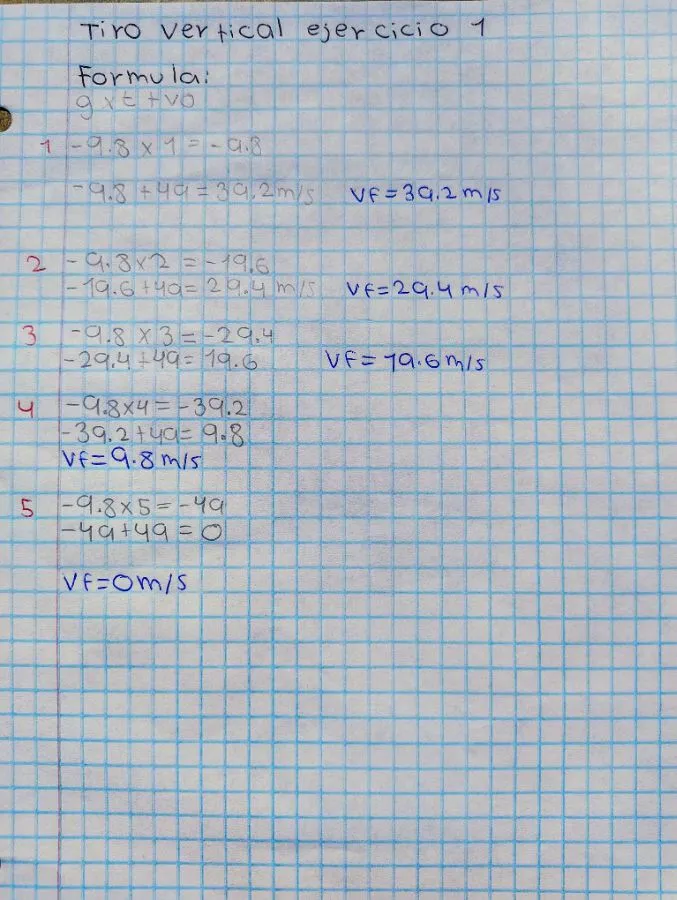 Tiro vertical ejercicio 1
Formula:
g x t + vo
1 -9.8 x 1 = -9.8
-9.8 + 49 = 39.2 m/s Vf = 39.2 m/s
2 -9.8 x 2 = -19.6
-19.6 + 49 = 29.4 m/s Vf = 29.4 m/s
3 -9.8 x 3 = -29.4
-29.4 + 49 = 19.6 Vf = 19.6 m/s
4 -9.8 x 4 = -39.2
-39.2 + 49 = 9.8
Vf = 9.8 m/s
5 -9.8 x 5 = -49
-49 + 49 = 0
Vf = 0 m/s